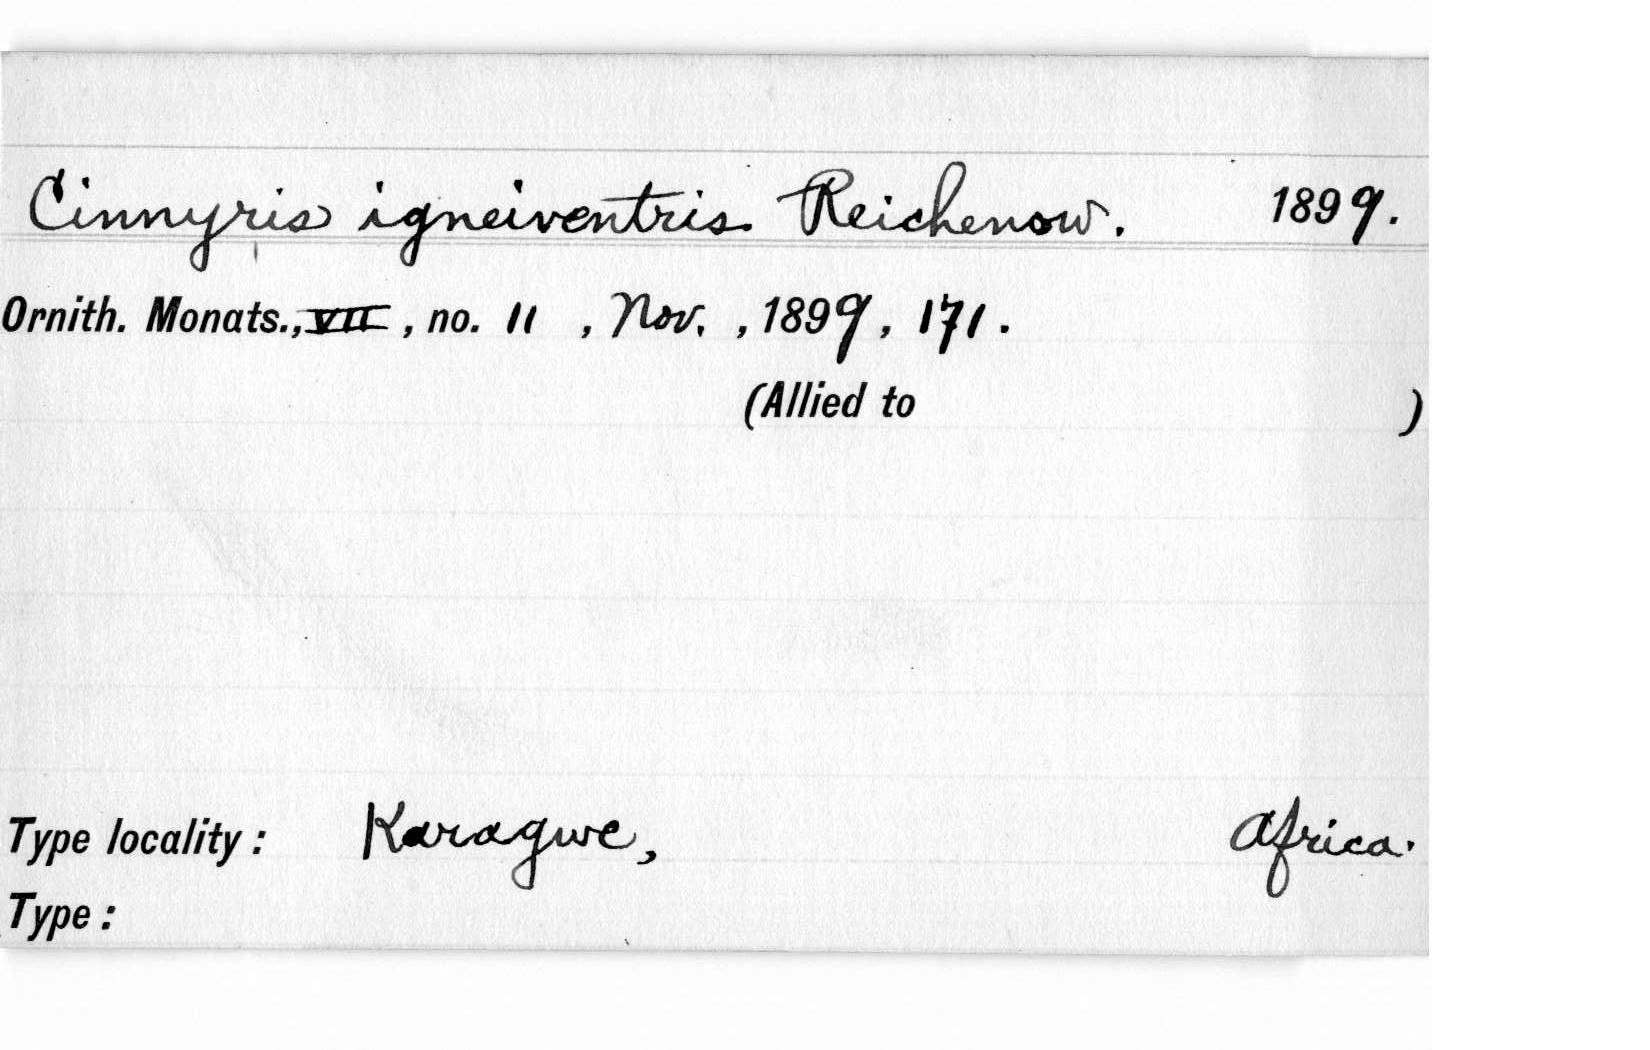 Cinnyris igneiventris Reichenow. 1899.
Ornith. Monats., VII, no. 11, Nov., 1899, 171.
(Allied to )
Type locality: Karagwe, Africa.
Type: